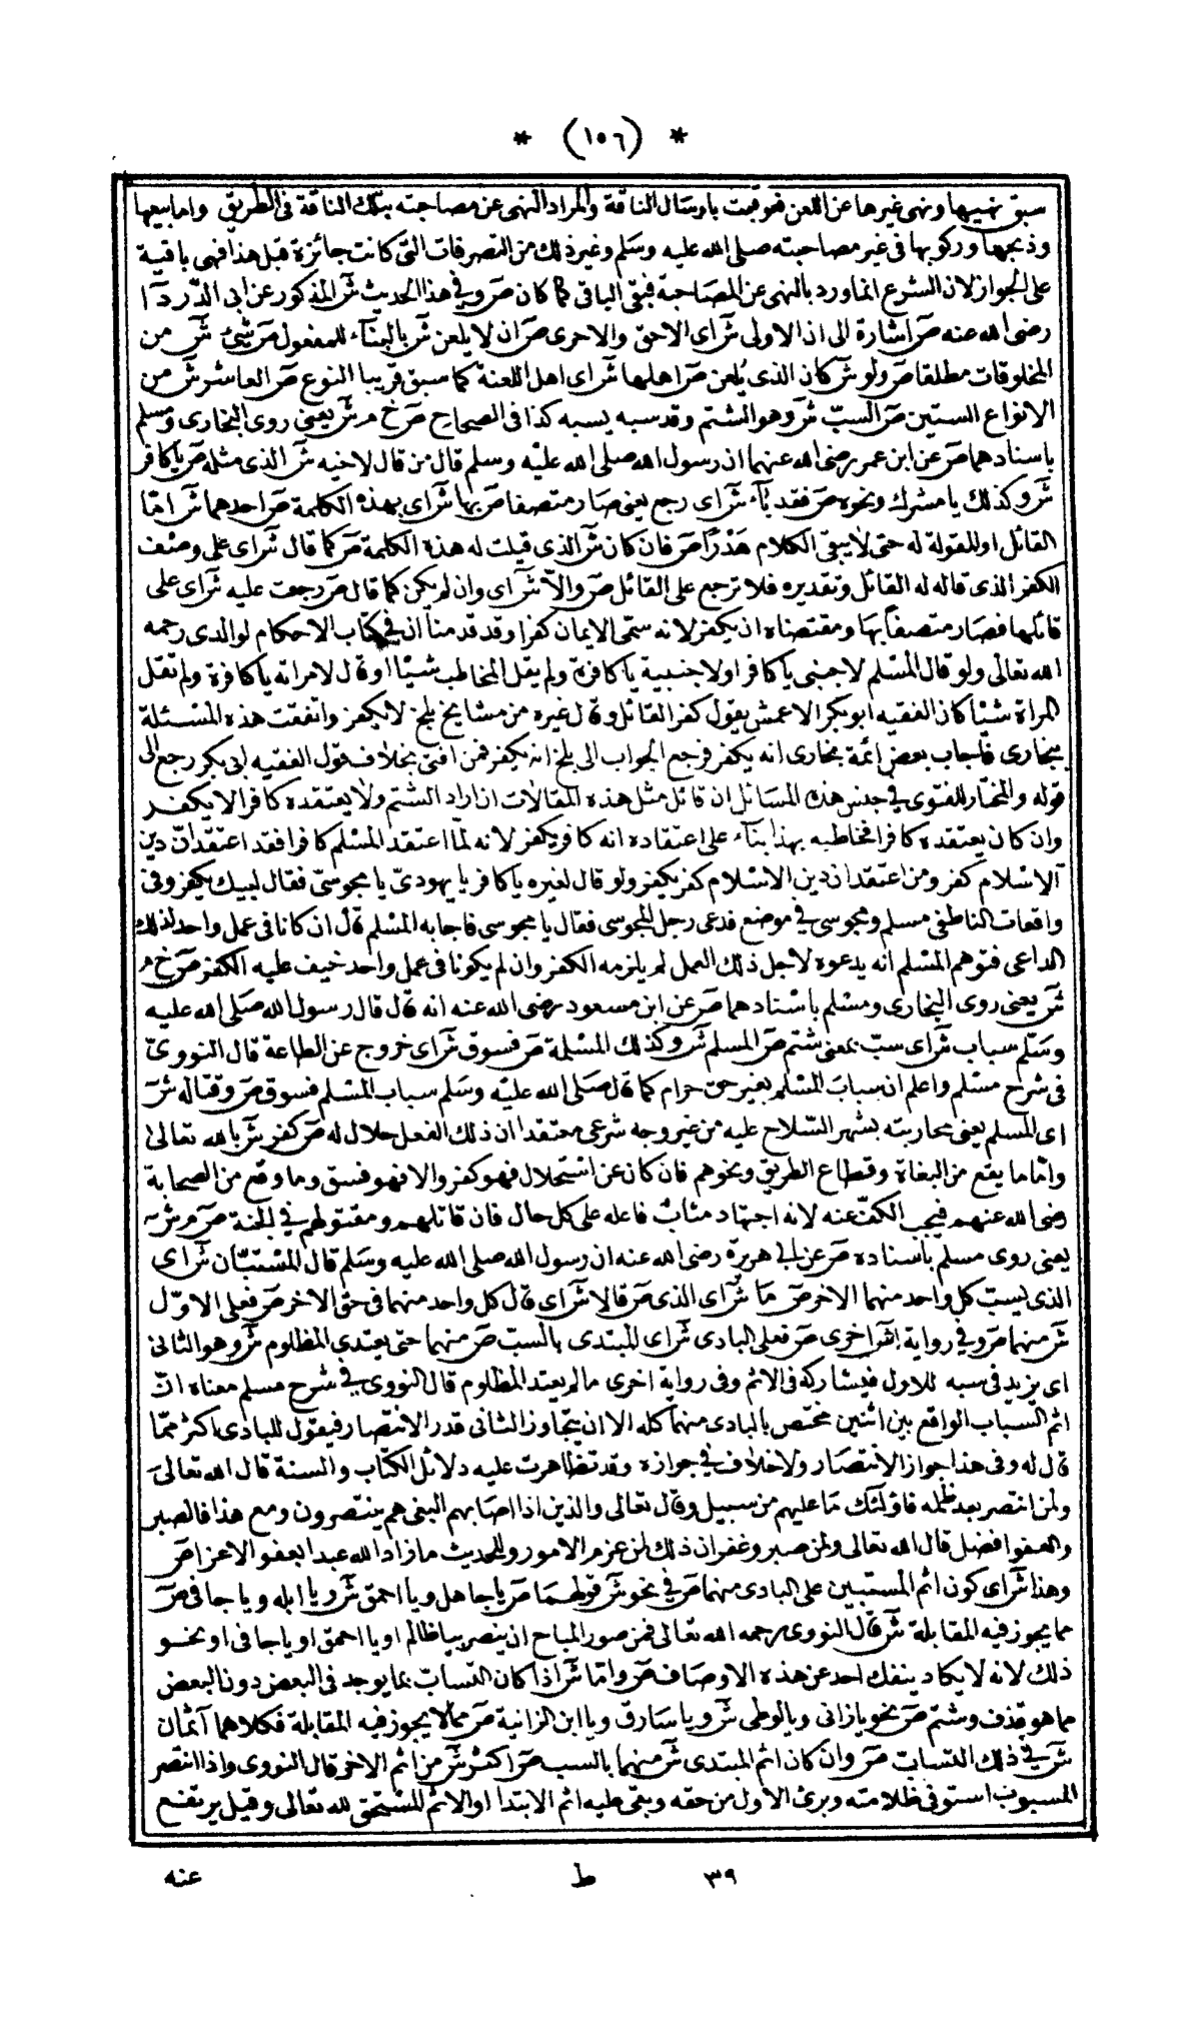 * (١٥٦) *
سبق نهيها ونهى غيرها عن اللعن فعوقبت بارسال الناقة والمراد النهى عن مصاحبته بتلك الناقة فى الطريق واما بيعها
وذبحها وركوبها فى غير مصاحبته صلى الله عليه وسلم وغير ذلك من التصرفات التى كانت جائزة قبل هذا فهى باقية
على الجواز لان الشرع انما ورد بالنهى عن المصاحبة فبقى الباقى كما كان ص وفى هذا الحديث ش المذكور عن ابى الدردا
رضى الله عنه ص اشارة الى ان الاولى ش اى الاحق والاحرى ص ان لا يلعن ش بالبنآء للمفعول ص شئ ش من
المخلوقات مطلقا ص ولو ش كان الذى يُلعن ص اهلها ش اى اهل اللعنة كما سبق قريبا النوع ص العاشر ش من
الانواع الستين ص السبّ ش وهو الشتم وقد سبه يسبه كذا فى الصحاح ص خ م ش يعنى روى البخارى ومسلم
باسنادهما ص عن ابن عمر رضى الله عنهما ان رسول الله صلى الله عليه وسلم قال من قال لاخيه ش الذى مثله ص يا كافر
ش وكذلك يا مشرك ونحوه ص فقد بآء ش اى رجع يعنى صار متصفا ص بها ش اى بهذه الكلمة ص احدهما ش امّا
القائل او المقولة له حتى لا يبقى الكلام هَدْرًا ص فان كان ش الذى قيلت له هذه الكلمة ص كما قال ش اى على وصف
الكفر الذى قاله له القائل وتقديره فلا ترجع على القائل ص والاّ ش اى وان لم يكن كما قال ص رجعت عليه ش اى على
قائلها فصار متصفا بها ومقتضاه ان يكفر لانه سمّى الايمان كفرا وقد قدمنا ان فى كتاب الاحكام لوالدى رحمه
الله تعالى ولو قال المسلم لاجنبى يا كافر او لاجنبية يا كافرة ولم يقل المخاطب شيئا او قال لامراته يا كافرة ولم تقل
المراة شيئا كان الفقيه ابو بكر الاعمش يقول كفر القائل وقال غيره من مشايخ بلخ لا يكفر واتفقت هذه المسئلة
ببخارى فاجاب بعض ائمة بخارى انه يكفر فرجع الجواب الى بلخ انه يكفر فمن افتى بخلاف قول الفقيه ابى بكر رجع الى
قوله والمختار للفتوى فى جنس هذه المسائل ان قائل مثل هذه المقالات ان اراد الشتم ولا يعتقده كافرا لا يكفر
وان كان يعتقده كافرا فخاطبه بهذا بنآء على اعتقاده انه كافر يكفر لانه لمّا اعتقد المسلم كافرا فقد اعتقد انّ دين
الاسلام كفر ومن اعتقد ان دين الاسلام كفر يكفر ولو قال لغيره يا كافر يا يهودىّ يا مجوسىّ فقال لبيك يكفر وفى
واقعات الناطفى مسلم ومجوسى فى موضع فدعى رجل المجوسى فقال يا مجوسى فاجابه المسلم قال ان كانا فى عمل واحد لذلك
الداعى فتوهم المسلم انه يدعوه لاجل ذلك العمل لم يلزمه الكفر وان لم يكونا فى عمل واحد خيف عليه الكفر ص خ م
ش يعنى روى البخارى ومسلم باسنادهما ص عن ابن مسعود رضى الله عنه انه قال قال رسول الله صلى الله عليه
وسلم سباب ش اى سبّ بمعنى شتم ص المسلم ش وكذلك المسلمة ص فسوق ش اى خروج عن الطاعة قال النووىّ
فى شرح مسلم واعلم ان سباب المسلم بغير حق حرام كما قال صلى الله عليه وسلم سباب المسلم فسوق ص وقتاله ش
اى المسلم يعنى محاربته بشهر السّلاح عليه من غير وجه شرعى معتقدا ان ذلك الفعل حلال له ص كفر ش بالله تعالى
وامّا ما يقع من البغاة وقطاع الطريق ونحوهم فان كان عن استحلال فهو كفر والا فهو فسق وما وقع من الصحابة
رضى الله عنهم فيجب الكفّ عنه لانه اجتهاد مثاب فاعله على كل حال فان قاتلهم ومقتولهم فى الجنة ص م ش
يعنى روى مسلم باسناده ص عن ابى هريرة رضى الله عنه ان رسول الله صلى الله عليه وسلم قال المستبّان ش اى
الذى يسبّ كل واحد منهما الاخر ص ما ش اى الذى ص قالا ش اى قال كل واحد منهما فى حق الاخر ص فعلى الاوّل
ش منهما ص وفى رواية ش اخرى ص فعلى البادى ش اى المبتدى بالسبّ ص منهما حتى يعتدى المظلوم ش وهو الثانى
اى يزيد فى سبه للاول فيشاركه فى الاثم وفى رواية اخرى ما لم يعتد المظلوم قال النووى فى شرح مسلم معناه انّ
اثم السباب الواقع بين اثنين مختص بالبادى منهما كله الا ان يتجاوز الثانى قدر الانتصار فيقول للبادى اكثر ممّا
قال له وفى هذا جواز الانتصار ولا خلاف فى جوازه وقد تظاهرت عليه دلائل الكتاب والسنة قال الله تعالى
ولمن انتصر بعد ظلمه فاولئك ما عليهم من سبيل وقال تعالى والذين اذا اصابهم البغى هم ينتصرون ومع هذا فالصبر
والعفو افضل قال الله تعالى ولمن صبر وغفر ان ذلك لمن عزم الامور وللحديث ما زاد الله عبدا بعفو الا عزا ص
وهذا ش اى كون اثم المستبين على البادى منهما ص فى نحو ش قولهما ص يا جاهل ويا احمق ش ويا ابله ويا جافى ص
مما يجوز فيه المقابلة ش قال النووى رحمه الله تعالى فمن صور المباح ان ينصر بيا ظالم او يا احمق او يا جافى او نحو
ذلك لانه لا يكاد ينفك احد عن هذه الاوصاف ص وامّا ش اذا كان التسابّ بما يوجد فى البعض دون البعض
مما هو قذف وشتم ص نحو يا زانى ويا لوطى ش ويا سارق ويا ابن الزانية ص مما لا يجوز فيه المقابلة فكلاهما آثمان
ش فى ذلك التسابّ ص وان كان اثم المبتدى ش منهما بالسبّ ص اكثر ش من اثم الاخر قال النووى واذا انتصر
المسبوب استوفى ظلامته وبرئ الاول من حقه وبقى عليه اثم الابتدا او الاثم المستحق لله تعالى وقيل يرتفع
٣٩ ط عنه